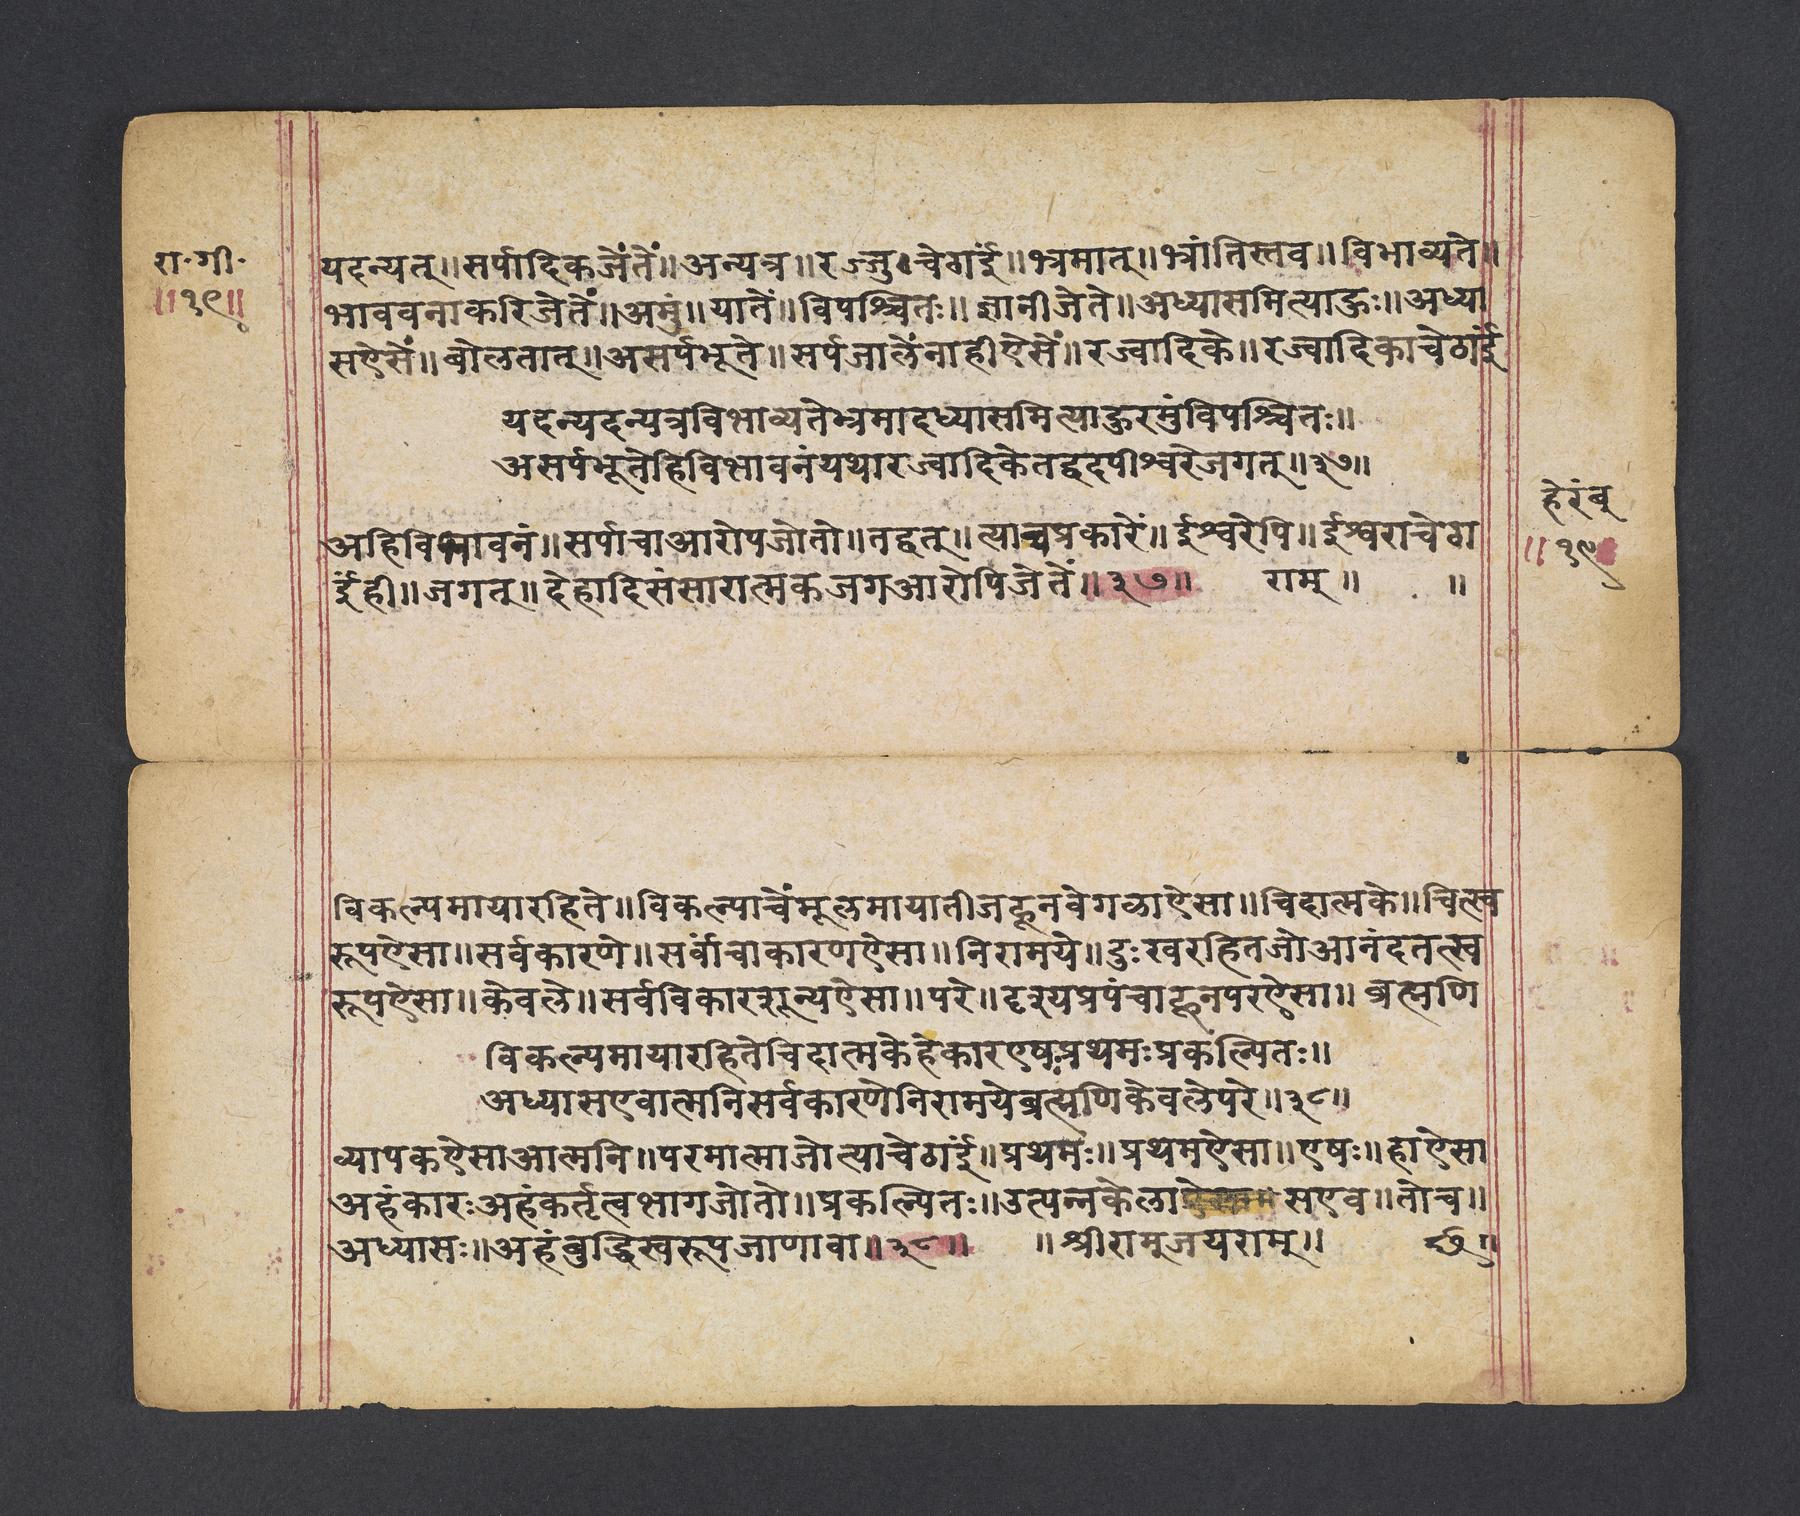 रा॰गी॰
॥१९॥
यदन्यत्॥सर्पादिकजेंतें॥अन्यत्र॥रज्जुचेठाईं॥भ्रमात्॥भ्रांतिस्तव॥विभाव्यते॥
भाववनाकरिजेतें॥अमुं॥यातें॥विपश्चितः॥ज्ञानीजेते॥अध्यासमित्याहुः॥अध्या
सऐसें॥बोलतात्॥असर्पभूते॥सर्पजालेंनाहीऐसें॥रज्वादिके॥रज्वादिकाचेठाईं
यदन्यदन्यत्रविभाव्यतेभ्रमादध्यासमित्याहुरमुंविपश्चितः॥
असर्पभूतेहिविभावनंयथारज्वादिकेतद्वदपीश्वरेजगत्॥३७॥
हेरंबु
॥१९
अहिविभावनं॥सर्पाचाआरोपजोतो॥तद्वत्॥त्याचप्रकारें॥ईश्वरेपि॥ईश्वराचेठा
ईंही॥जगत्॥देहादिसंसारात्मकजगआरोपिजेतें॥३७॥ रामु॥ ॥
विकल्पमायारहिते॥विकल्पाचेंमूलमायातीजहूनवेगळाऐसा॥चिदात्मके॥चित्स्व
रूपऐसा॥सर्वकारणे॥सर्वांचाकारणऐसा॥निरामये॥दुःखरहितजोआनंदतत्स्व
रूपऐसा॥केवले॥सर्वविकारशून्यऐसा॥परे॥दृश्यप्रपंचाहूनपरऐसा॥ब्रह्मणि
विकल्पमायारहितेचिदात्मकेहंकारएषप्रथमःप्रकल्पितः॥
अध्यासएवात्मनिसर्वकारणेनिरामयेब्रह्मणिकेवलेपरे॥३८॥
व्यापकऐसाआत्मनि॥परमात्माजोत्याचेठाईं॥प्रथमः॥प्रथमऐसा॥एषः॥हाऐसा
अहंकारःअहंकर्तृत्वभागजोतो॥प्रकल्पितः॥उत्पन्नकेला सएव॥तोच॥
अध्यासः॥अहंबुद्धिस्वरूपजाणावा॥३८॥ ॥श्रीरामुजयरामु॥ छ॥